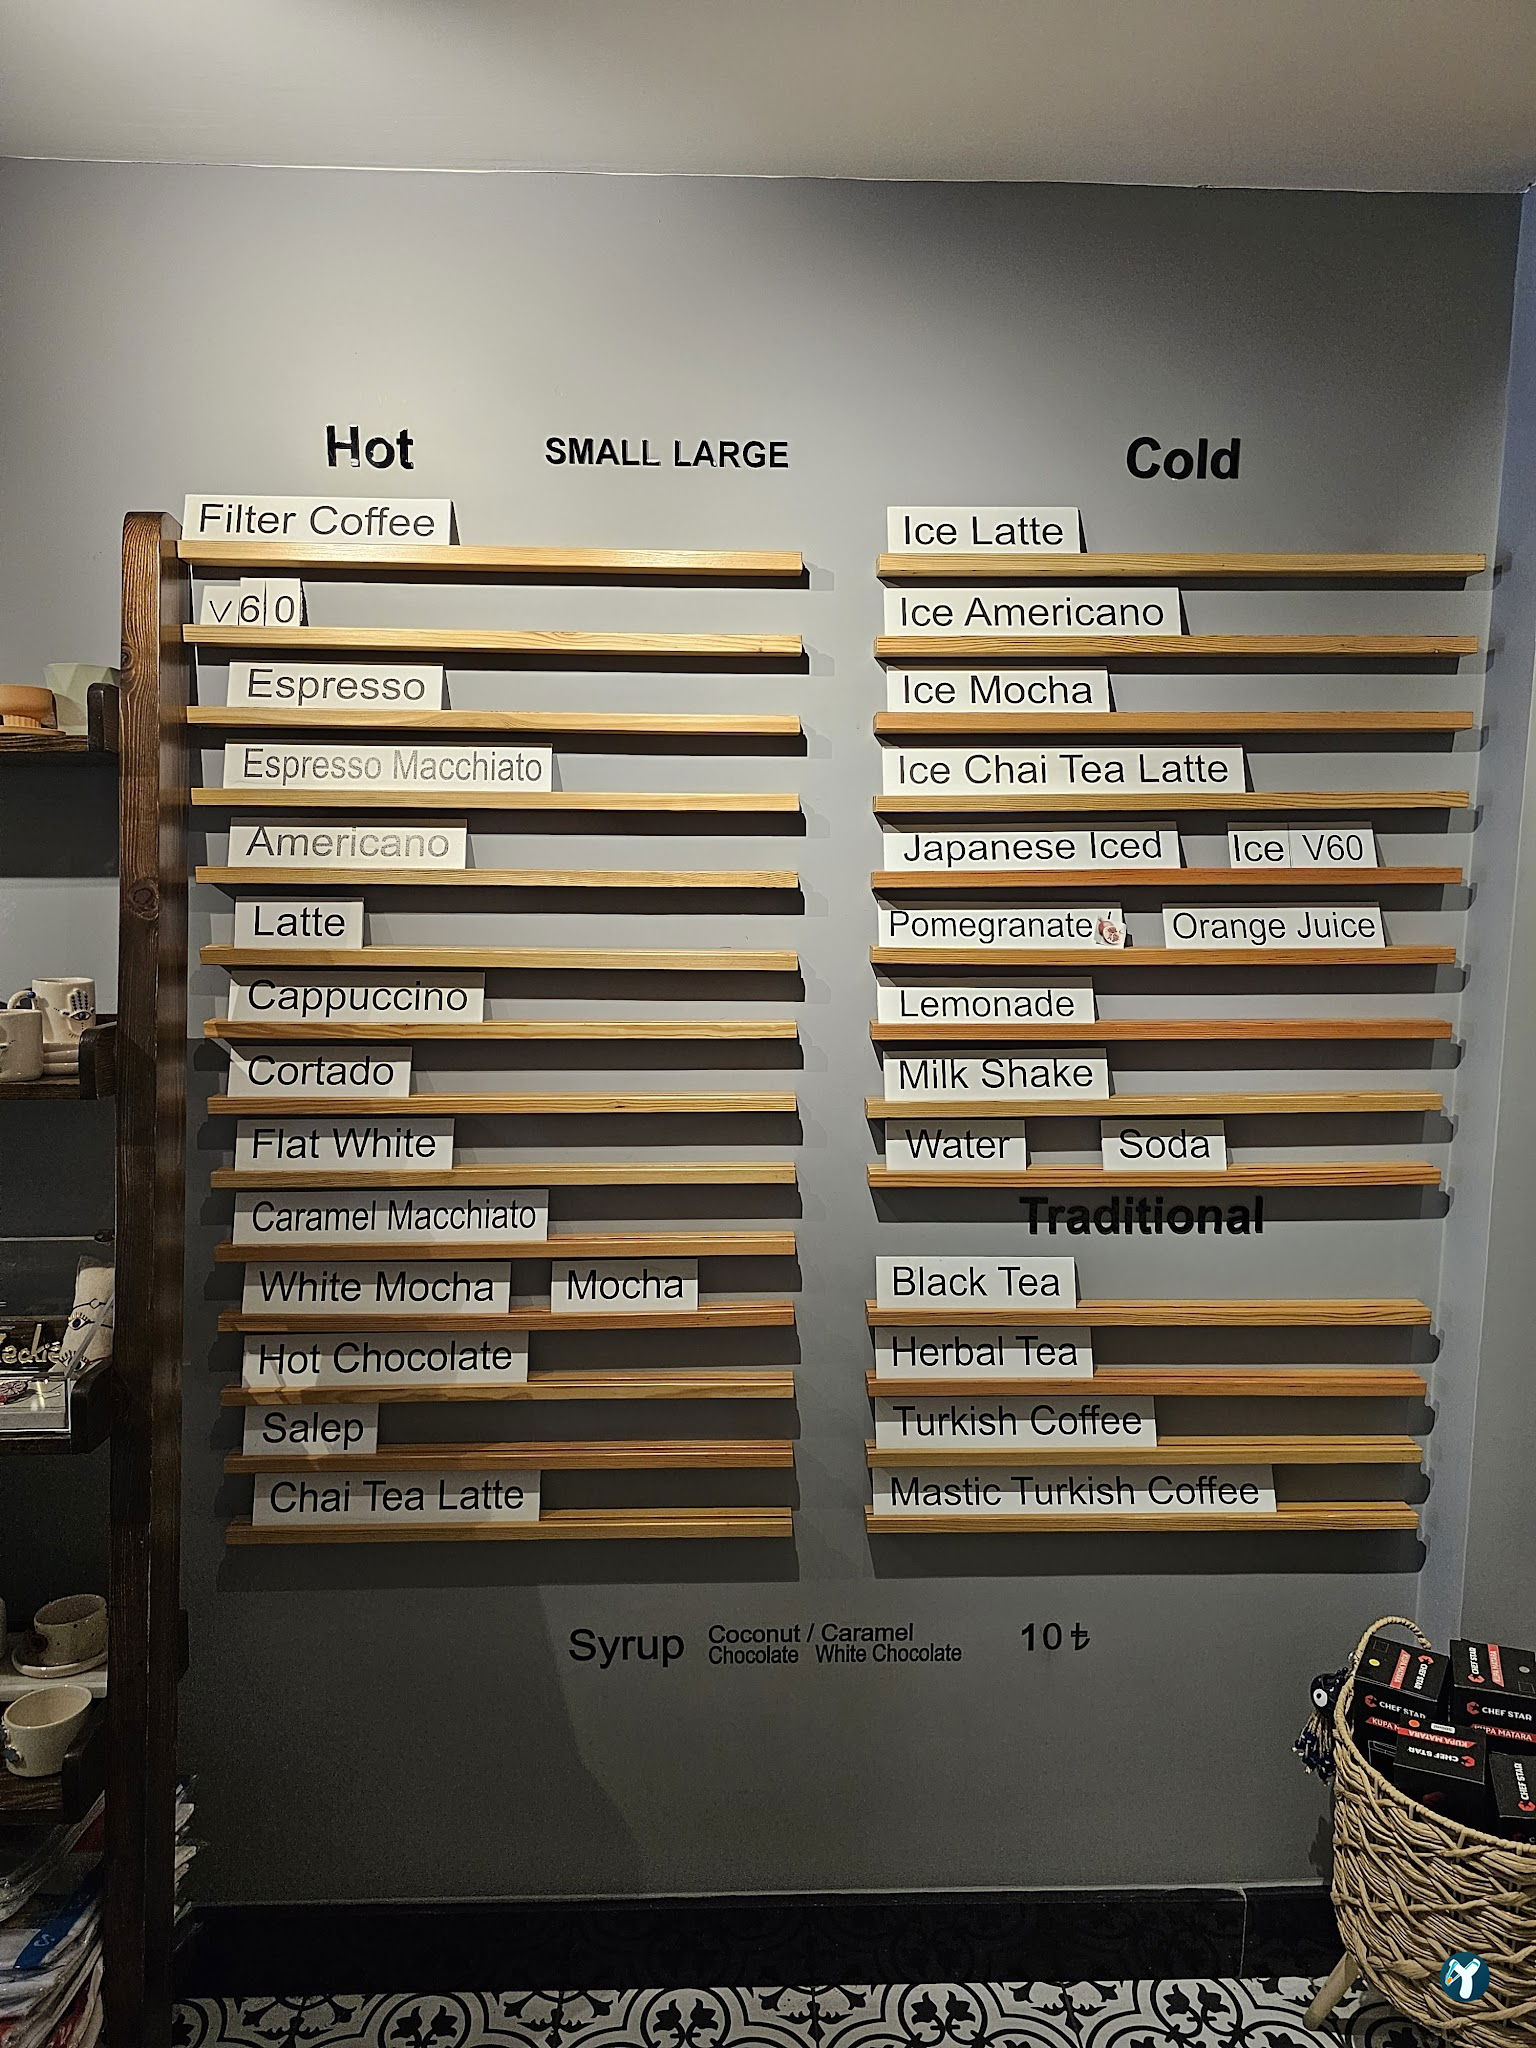 Hot SMALL LARGE
Filter Coffee
V60
Espresso
Espresso Macchiato
Americano
Latte
Cappuccino
Cortado
Flat White
Caramel Macchiato
White Mocha Mocha
Hot Chocolate
Salep
Chai Tea Latte
Cold
Ice Latte
Ice Americano
Ice Mocha
Ice Chai Tea Latte
Japanese Iced Ice V60
Pomegranate / Orange Juice
Lemonade
Milk Shake
Water Soda
Traditional
Black Tea
Herbal Tea
Turkish Coffee
Mastic Turkish Coffee
Syrup Coconut / Caramel 10 ₺
Chocolate White Chocolate
CHEF STAR
KUPA MATARA
CHEF STAR
CHEF STAR
KUPA MATARA
CHEF STAR
KUPA MATARA
CHEF STAR
CHEF STAR